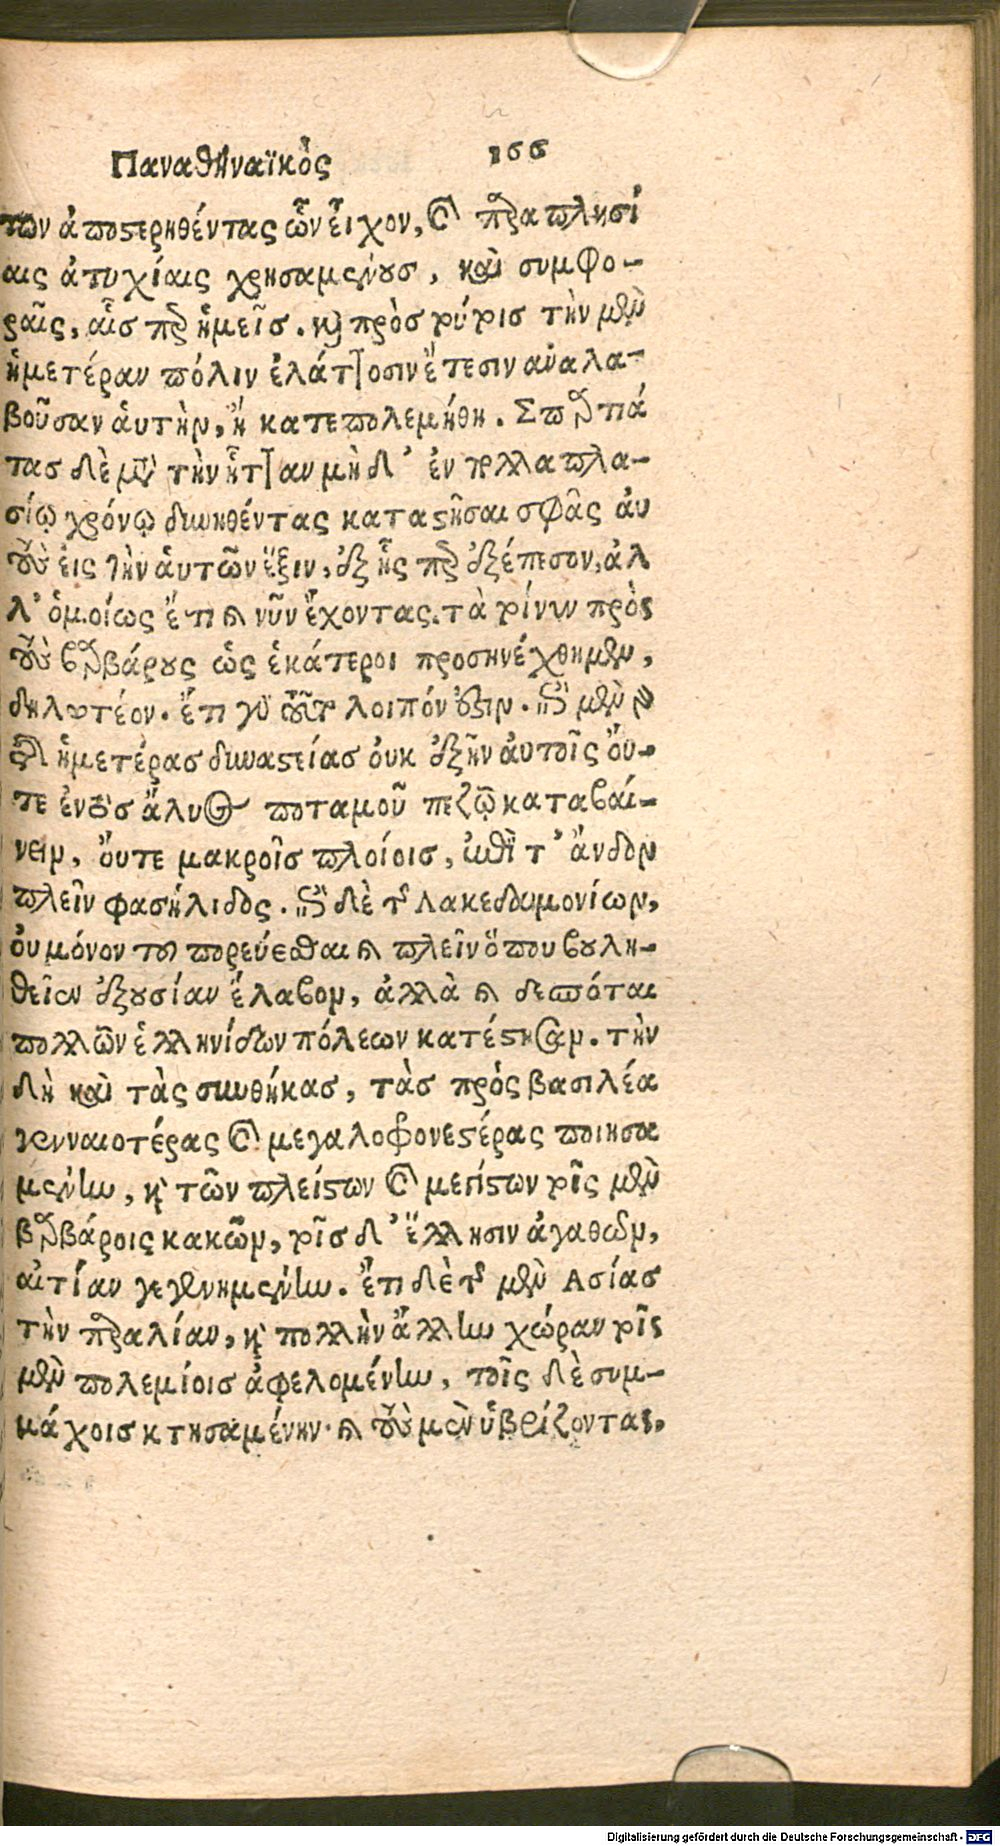 Παναθηναϊκὸς 166
των ἀποστερηθέντας ὧν εἶχον, καὶ παραπλησί
αις ἀτυχίαις χρησαμένους, καὶ συμφο-
ραῖς, αἷσ περ ἡμεῖσ. καὶ πρὸσ τούτοισ τὴν μὲν
ἡμετέραν πόλιν ἐλάττοσιν ἔτεσιν ἀναλα-
βοῦσαν ἁυτὴν, ἢ κατεπολεμήθη. Σπαρτιά
τασ δὲ μετὰ τὴν ἧτταν μηδ' ἐν πολλαπλα-
σίῳ χρόνῳ δυνηθέντας καταστῆσαι σφᾶς ἀυ
τοὺς ἐις τὴν ἁυτῶν ἕξιν, ἐξ ἧς περ ἐξέπεσον, ἀλ
λ' ὁμοίως ἔτι καὶ νῦν ἔχοντας. τὰ τοίνυν πρὸς
τοὺς βαρβάρους ὡς ἑκάτεροι προσηνέχθημεν,
δηλωτέον. ἔτι γὰρ τοῦτ λοιπόν ἐστιν. ἐπὶ μὲν γὰρ
τῆς ἡμετέρασ δυναστείασ ὀυκ ἐξῆν ἀυτοῖς ὄυ-
τε ἐντὸσ ἅλυος ποταμοῦ πεζῷ καταβαί-
νειν, ὄυτε μακροῖσ πλοίοισ, ἐπὶ τ' ἄνδον
πλεῖν φασήλιδος. ἐπὶ δὲ τῆς Λακεδαιμονίων,
ὀυ μόνον τοῦ πορεύεσθαι καὶ πλεῖν ὅπου βουλη-
θεῖεν ἐξουσίαν ἔλαβον, ἀλλὰ καὶ δεσπόται
πολλῶν ἑλληνίδων πόλεων κατέστησαν. τὴν
δὴ καὶ τὰς συνθήκασ, τὰσ πρὸς βασιλέα
γενναιοτέρας καὶ μεγαλοφρονεστέρας ποιησα
μένην, καὶ τῶν πλείστων καὶ μεγίστων τοῖς μὲν
βαρβάροις κακῶν, τοῖσ δ' ἕλλησιν ἀγαθῶν,
αἰτίαν γεγενημένην. ἔτι δὲ τῆς μὲν Ασίασ
τὴν παραλίαν, καὶ πολλὴν ἄλλην χώραν τοῖς
μὲν πολεμίοισ ἀφελομένην, τοῖς δὲ συμ-
μάχοισ κτησαμένην· καὶ τοὺς μὲν ὑβρίζοντας,
Digitalisierung gefördert durch die Deutsche Forschungsgemeinschaft - DFG